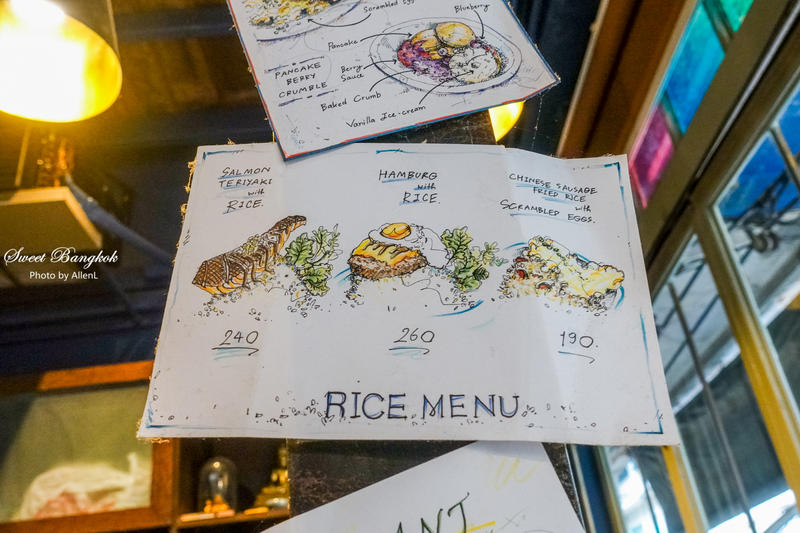 Scrambled Egg
Blueberry
Pancake
PANCAKE
BERRY
CRUMBLE
Berry
Sauce
Baked Crumb
Vanilla Ice-cream
SALMON
TERIYAKI
with
RICE.
240
HAMBURG
with
RICE.
260
CHINESE SAUSAGE
FRIED RICE
with
SCRAMBLED EGGS.
190.
RICE MENU
Sweet Bangkok
Photo by AllenL